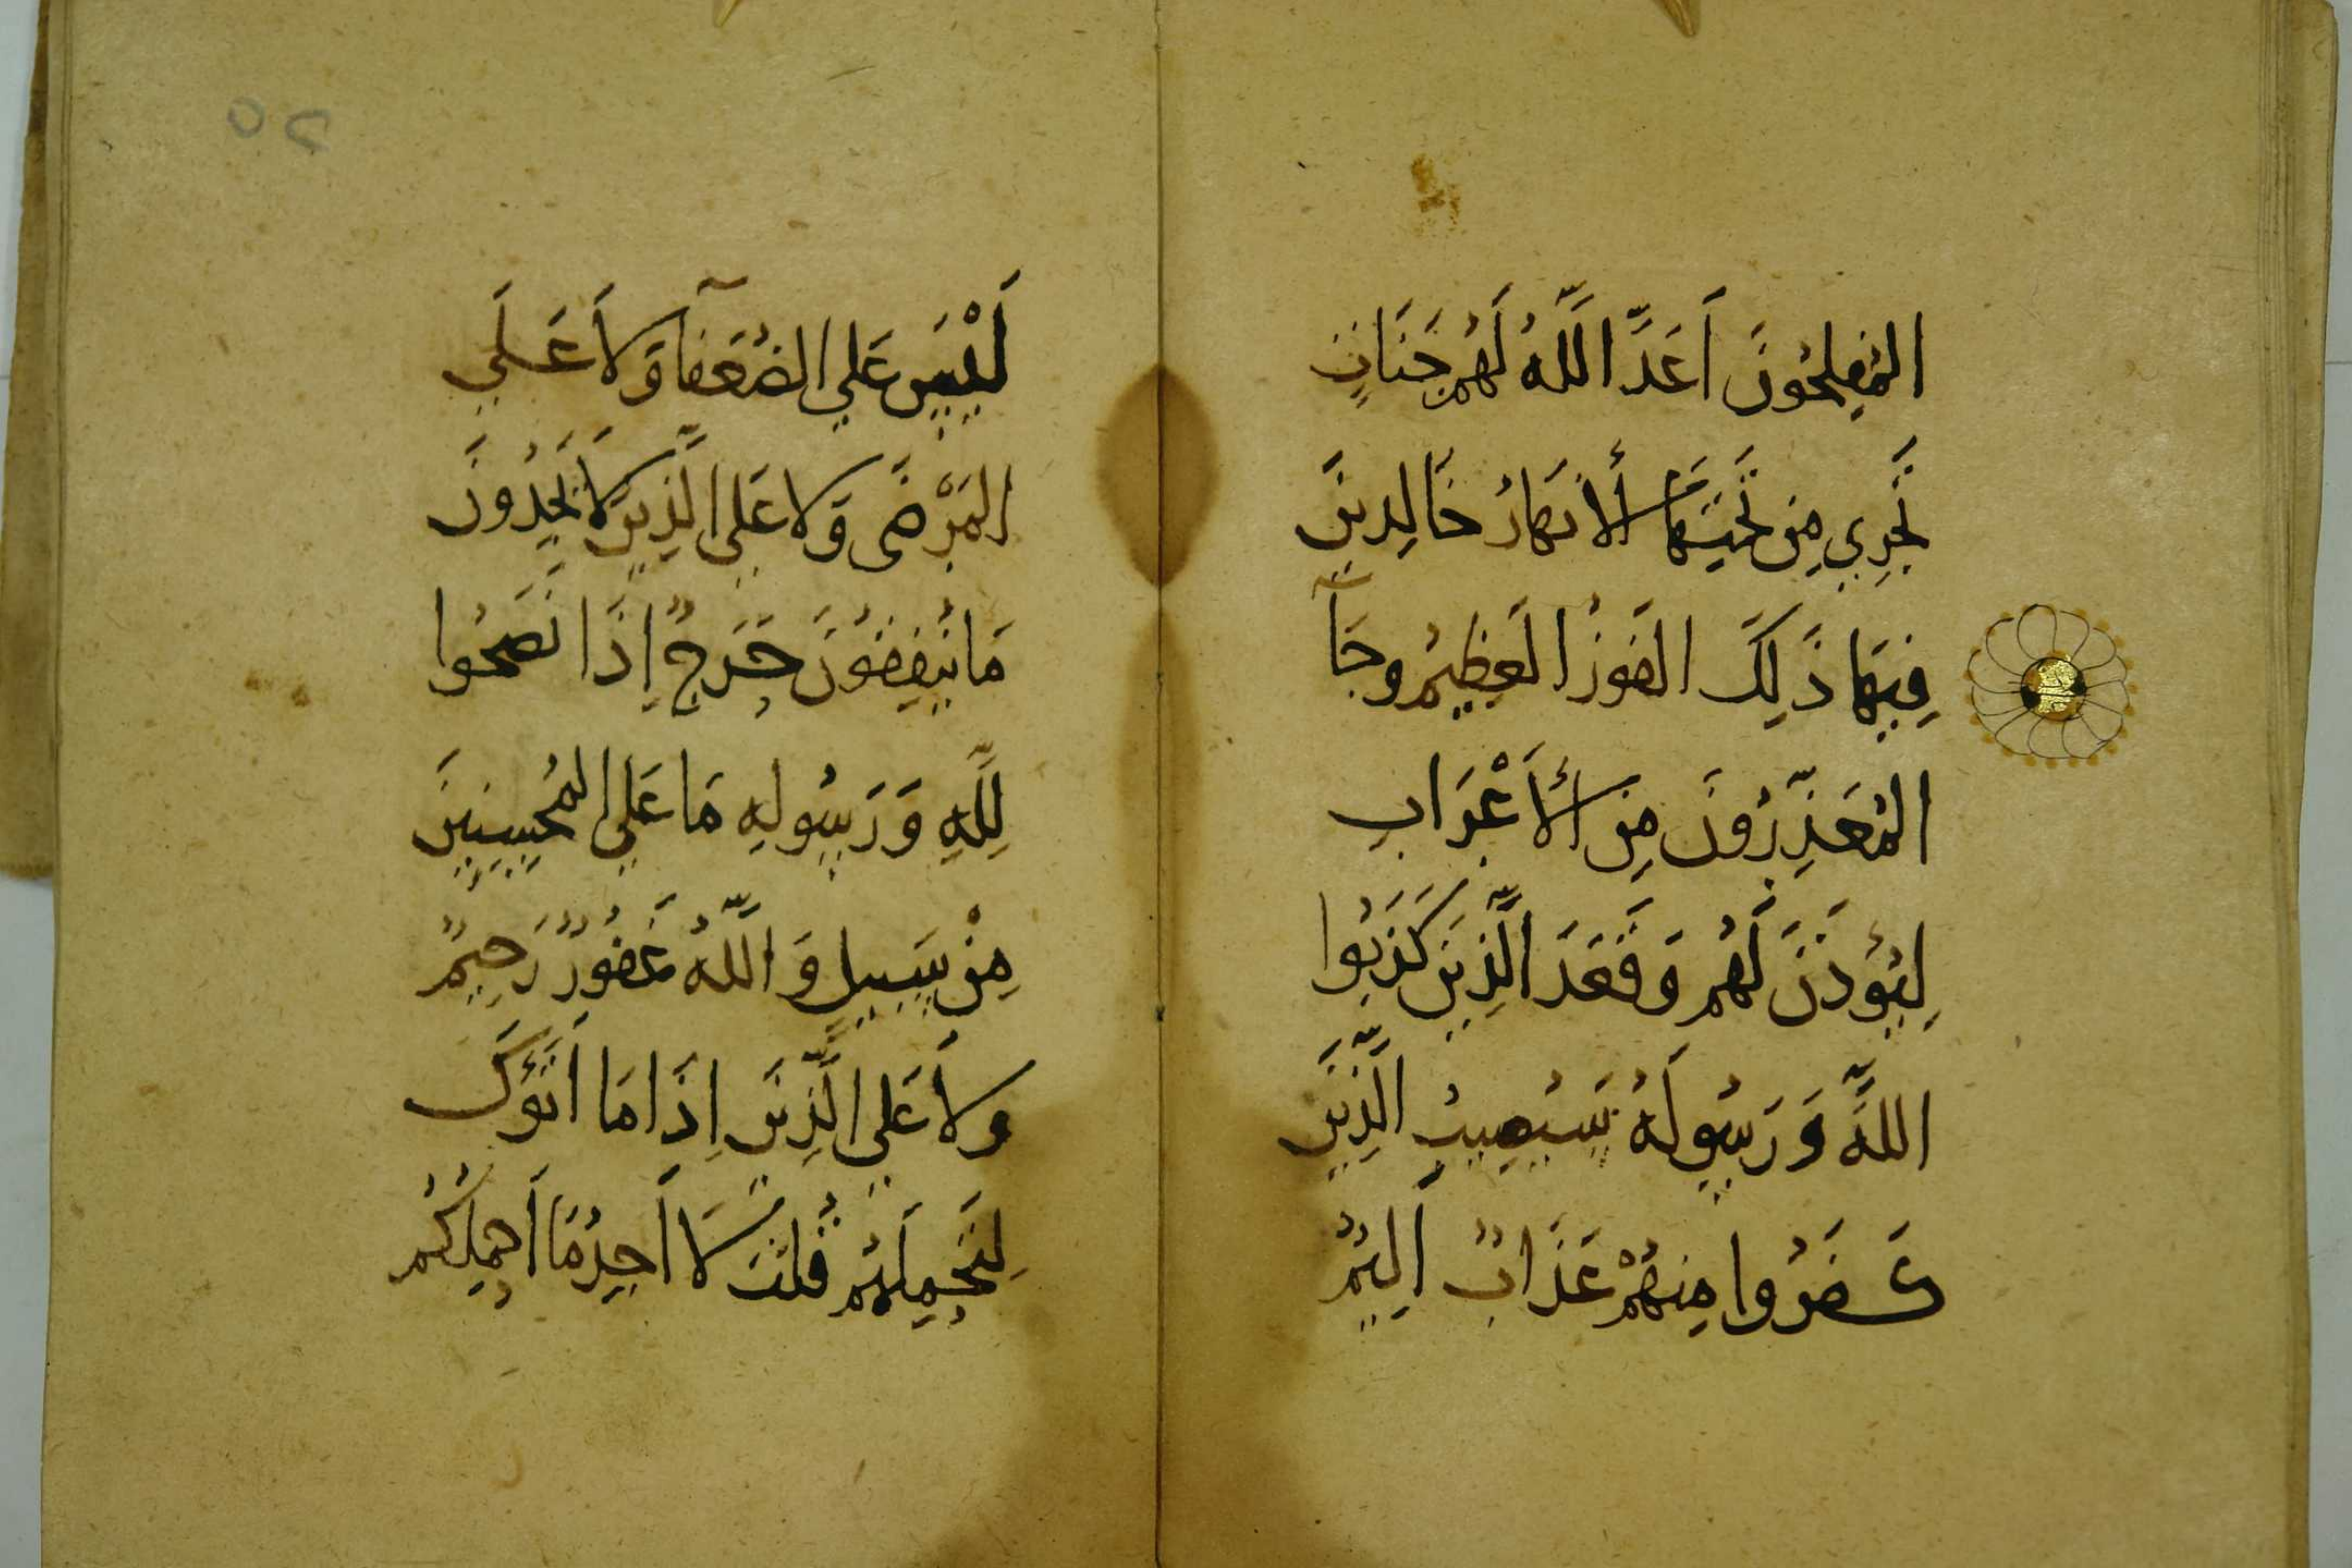 المُفلِحُونَ اَعَدَّ اللَّهُ لَهُم جَنَاتٍ
تَجرِي مِن تَحتِهَا الأَنهَارُ خَالِدِينَ
فِيهَا ذَلِكَ الفَوزُ العَظِيمُ وجَآ
المُعَذِّرُونَ مِن الأَعْرَابِ
لِيُؤذَنَ لَهُم وَقَعَدَ الَّذِينَ كَذَبُوا
اللَّهَ وَرَسُولَهُ سَيُصِيبُ الَّذِينَ
كَفَرُوا مِنهُمْ عَذَابٌ اَلِيمٌ
لَيْسَ عَلَي الضُعَفآ وَلاَ عَلَي
المَرْضَى وَلا عَلَي الَّذِينَ لاَ يَجِدُونَ
مَا يُنفِقُونَ حَرَجٌ اِذَا نَصَحُوا
لِلَّهِ وَرَسُولِهِ مَا عَلَي المُحسِنِينَ
مِنْ سَبِيلٍ وَاللَّهُ غَفُورٌ رَحِيمٌ
ولاَ عَلَي الَّذِينَ اِذَا مَا اَتَوْكَ
لِتَحمِلَهُم قُلتَ لَا اَجِدُ مَا اَحمِلُكُم
٥٢